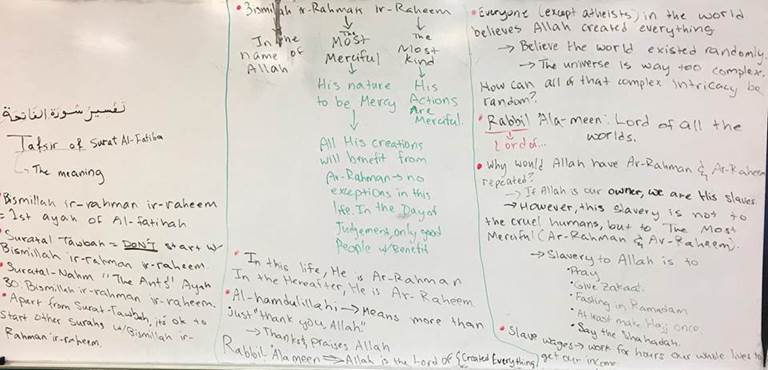 تفسير سورة الفاتحة
Tafsir of Surat Al-Fatiha
↳ The meaning
Bismillah ir-rahman ir-raheem
= 1st ayah of Al-fatihah
• Suratal-Tawbah = DON'T start w/
Bismillah ir-rahman ir-raheem.
• Suratal-Nahm "The Ants" Ayah
30. Bismillah ir-rahman ir-raheem.
• Apart from Surat-Tawbah, it's ok to
start other surahs w/Bismillah ir-
Rahman ir-raheem.
• Bismillah ir-Rahman ir-Raheem
In the
name of
Allah
The
Most
Merciful
The
Most
Kind
His nature
to be Mercy
His
Actions
Are
Merciful.
All His creations
will benefit from
Ar-Rahman → no
exceptions in this
life. In the Day of
Judgement, only good
People w/ Benefit
• In this life, He is Ar-Rahman
In the Hereafter, He is Ar-Raheem
• Al-hamdulillahi → Means more than
Just "thank you, Allah"
→ Thanks & praises Allah
Rabbil 'Ala meen → Allah is the Lord of {Created Everything}
• Everyone (except atheists) in the world
believes Allah created everything
→ Believe the world existed randomly.
→ The universe is way too complex.
How can all of that complex intricacy be
random?
• Rabbil 'Ala-meen: Lord of all the
worlds.
Lord of...
• Why would Allah have Ar-Rahman & Ar-Raheem
repeated?
→ If Allah is our owner, we are His slaves.
→ However, this slavery is not to
the cruel humans, but to The Most
Merciful (Ar-Rahman & Ar-Raheem).
→ Slavery to Allah is to
• Pray
• Give Zakaat.
• Fasting in Ramadam
• At least make Hajj once.
• Say the Shahadah.
• Slave wages → work for hours our whole lives to
get our income